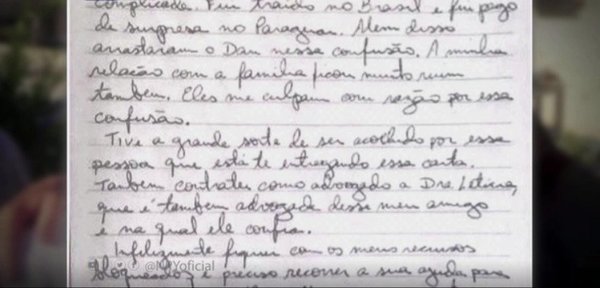 complicada. Fui traído no Brasil e fui pego
de surpresa no Paraguai. Além disso
arrastaram o Dan nessa confusão. A minha
relação com a família ficou muito ruim
também. Eles me culpam com razão por essa
confusão.
Tive a grande sorte de ser acolhido por essa
pessoa que está te entregando essa carta.
Também contratei como advogado a Dra. Letícia,
que é também advogada desse meu amigo
e na qual ele confia.
Infelizmente fiquei com os meus recursos
bloqueados e preciso recorrer a sua ajuda para